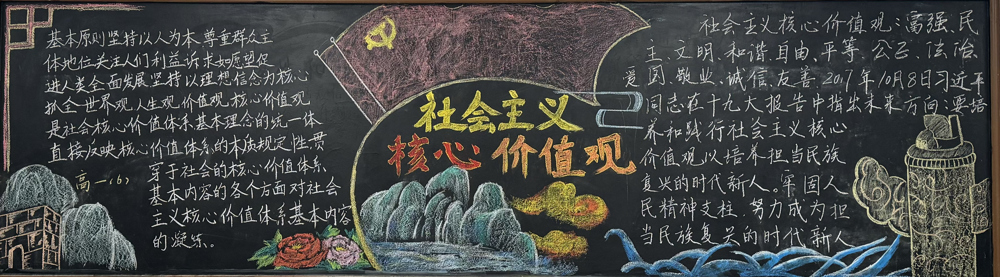 基本原则坚持以人为本尊重群众主
体地位关注人们利益诉求如愿望促
进人类全面发展坚持以理想信念为核心
抓全世界观人生观价值观、核心价值观
是社会核心价值体系基本理念的统一体
直接反映核心价值体系的本质规定性贯
穿于社会的核心价值体系
基本内容的各个方面对社会
主义核心价值体系基本内容
的凝练。
高一(6)
社会主义
核心价值观
社会主义核心价值观:富强、民
主、文明、和谐、自由、平等、公正、法治、
爱国、敬业、诚信、友善。2017年10月8日习近平
同志在十九大报告中指出未来方向:要培
养和践行社会主义核心
价值观以培养担当民族
复兴的时代新人。牢固人
民精神支柱、努力成为担
当民族复兴的时代新人